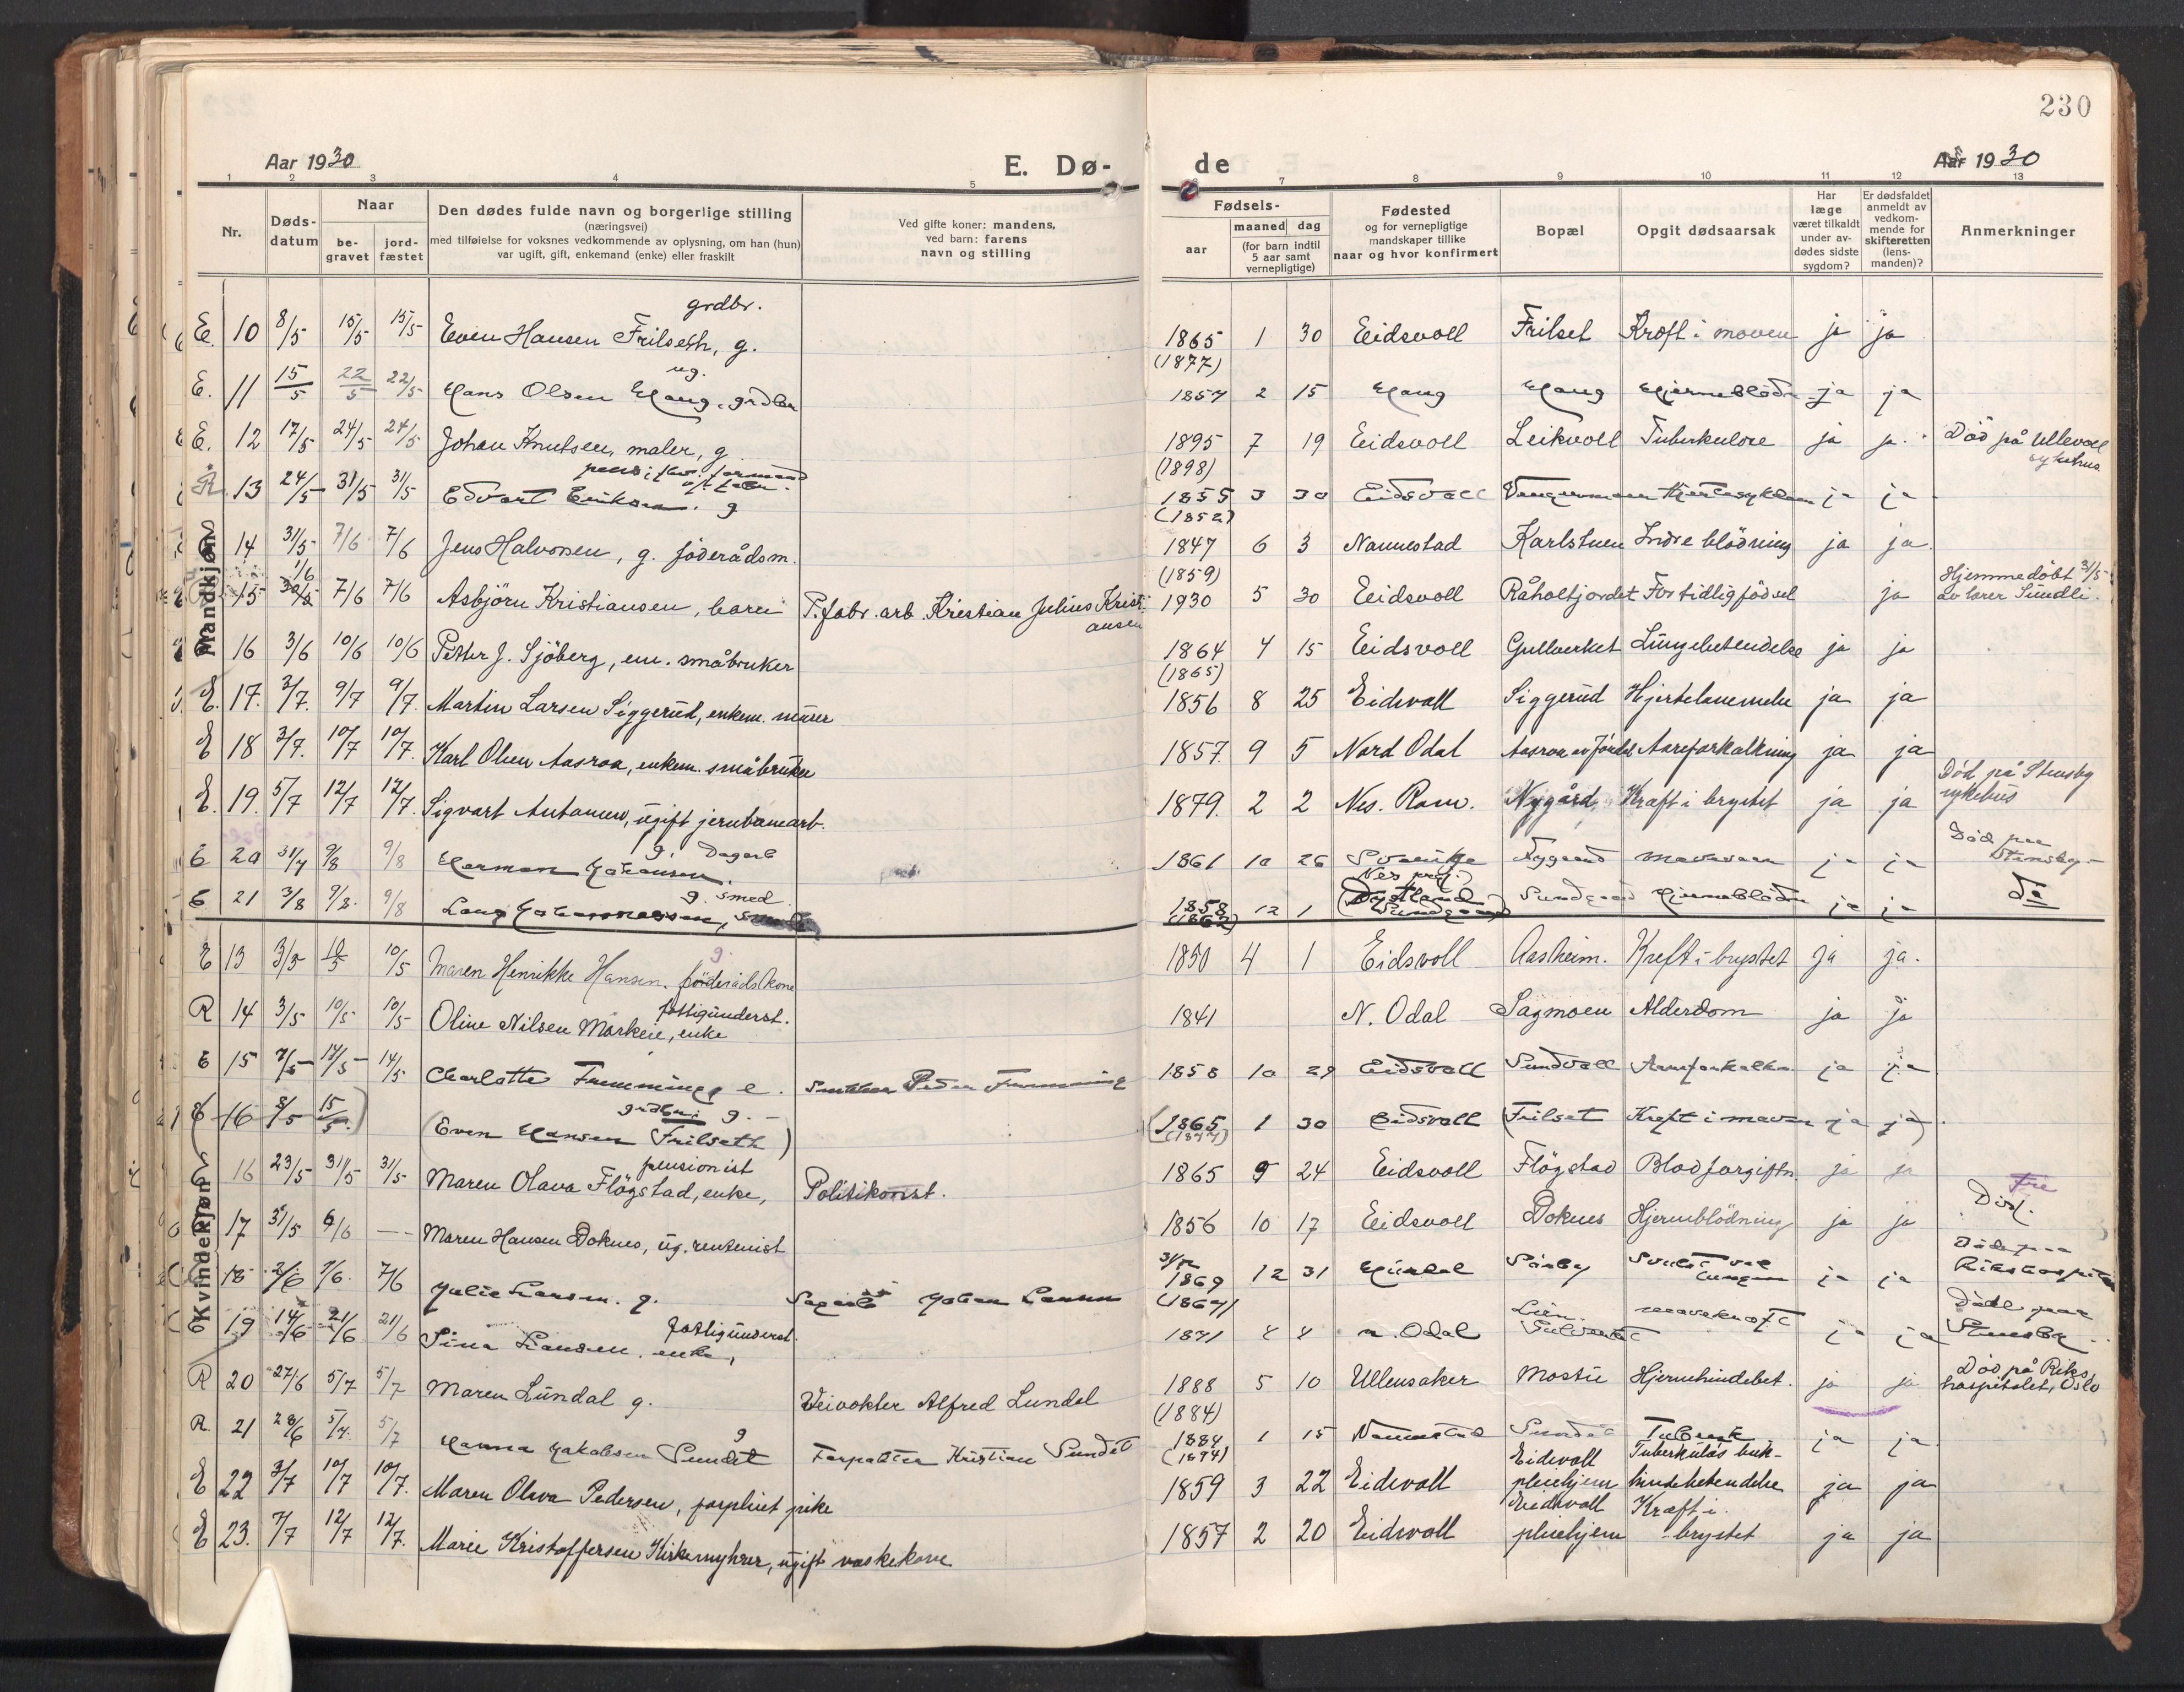 230
Aar 1930
E. Dø-
de
Aar 1930
1 2 3 4 5 6 7 8 9 10 11 12 13
Nr.
Døds-
datum
Naar
be-
gravet
jord-
fæstet
Den dødes fulde navn og borgerlige stilling
(næringsvei)
med tilføielse for voksnes vedkommende av oplysning, om han (hun)
var ugift, gift, enkemand (enke) eller fraskilt
Ved gifte koner: mandens,
ved barn: farens
navn og stilling
Fødsels-
aar
maaned dag
(for barn indtil
5 aar samt
vernepligtige)
Fødested
og for vernepligtige
mandskaper tillike
naar og hvor konfirmert
Bopæl
Opgit dødsaarsak
Har
læge
været tilkaldt
under av-
dødes sidste
sygdom?
Er dødsfaldet
anmeldt av
vedkom-
mende for
skifteretten
(lens-
manden)?
Anmerkninger
Mandkjøn
grdbr.
E. 10 8/5 15/5 15/5 Even Hansen Frilseth, g. 1865 1 30 Eidsvoll Frilset Kræft i maven ja ja
(1877)
ug.
E. 11 15/5 22/5 22/5 Hans Olsen Haug, grdbr 1857 2 15 Haug Haug Hjerneblødn. ja ja
E. 12 17/5 24/5 24/5 Johan Knutsen, maler, g. 1895 7 19 Eidsvoll Leikvoll Tuberkulose ja ja Død på Ullevoll
sykehus
(1898)
R. 13 24/5 31/5 31/5 Edvart Eriksen. g 1855 3 30 Eidsvoll Hjertesykdom ja ja
(1852)
14 31/5 7/6 7/6 Jens Halvorsen, g. föderådsm. 1847 6 3 Nannestad Karlstuen Indre blödning ja ja
(1859)
1/6
15 30/5 7/6 7/6 Asbjörn Kristiansen, barn T. fabr. arb. Kristian Julius Kristi-
ansen 1930 5 30 Eidsvoll Råholtjordet For tidlig födsel ja Hjemmedöbt 31/5
av lærer Sundli.
16 3/6 10/6 10/6 Petter J. Sjöberg, em. småbruker 1864 4 15 Eidsvoll Gullverket Lungebetendelse ja ja
(1865)
E. 17. 3/7. 9/7 9/7. Martin Larsen Siggerud, enkem. murer 1856 8 25 Eidsvoll Siggerud Hjertelammelse ja ja
E 18 3/7. 10/7 10/7. Karl Olsen Aasroa, enkem. småbruker 1857. 9 5 Nord Odal Aasroa Aareforkalkning ja ja
E. 19. 5/7 12/7 12/7. Sigvart Antonsen, ugift jernbanearb. 1879. 2 2 Nes. Rom. Nygård Kræft i brystet ja ja Död på Stensby
sykehus
g. Dagarb
E 20 31/7 9/8 9/8 Herman Johansen. 1861 10 26 Sverige Nygaard Mavesaar ja ja Død paa
Stensby
g. smed
E 21 3/8 9/8. 9/8 1858 12 1 Sundgaard Hjerneblødn ja ja do
Kvindekjøn
g.
E 13 3/5 10/5 10/5 Maren Henrikke Hansen. föderådskone 1850 4 1 Eidsvoll Aasheim. Kreft i brystet ja ja.
fattigunderst.
R 14 3/5 10/5 10/5 Oline Nilsen Morkeie, enke 1841 N. Odal Sagmoen Alderdom ja ja
E 15 7/5 14/5 14/5 Charlotte Fremming e. Peder Fremming 1858 10 29 Eidsvoll Sundvoll Aareforkalkn ja ja
grdbr. g.
E 16 8/5 15/5.) (Even Hansen Frilseth) (1865 1 30 Eidsvoll Frilset Kreft i maven ja ja)
(1877)
pensionist
16 23/5 31/5 31/5 Maren Olava Flögstad, enke, Politikonst. 1865 9 24 Eidsvoll Flögstad Blodforgiftn. ja ja
17 31/5 6/6 — Maren Hansen Doknes, ug. rentenist 1856 10 17 Eidsvoll Doknes Hjerneblödning ja ja
18 2/6 7/6. 7/6 Julie Larsen. g. Sagarb Johan Larsen 1869 12 31 Hurdal Svulst ved
lungen ja ja Død paa
Rikshospital
(1867)
fattigunderst.
19 14/6 21/6 21/6 Sina Hansen. enke, 1871 4 4 n. Odal mavekræft ja ja Død paa
Stensby
R 20 27/6 5/7 5/7 Maren Lundal g. Veivokter Alfred Lundal 1888 5 10 Ullensaker Mostu Hjernehindebet. ja ja Død på Riks-
hospitalet, Oslo
(1884)
g
R. 21 28/6 5/7. 5/7 Hanna Jakobsen Sundet Forpakter Kristian Sundet 1884 1 15 Nannestad Sundet Tuberk. ja ja
(1894)
E 22 3/7 10/7 10/7. Maren Olava Pedersen, forpleiet pike 1859 3 22 Eidsvoll Eidsvoll
pleiehjem Tuberkuløs buk-
hindebetendelse ja ja
E 23. 7/7 12/7 12/7. Marie Kristoffersen Kirkemyhrer, ugift vaskekone 1857 2 20 Eidsvoll Eidsvoll
pleiehjem Kræft i
brystet ja ja